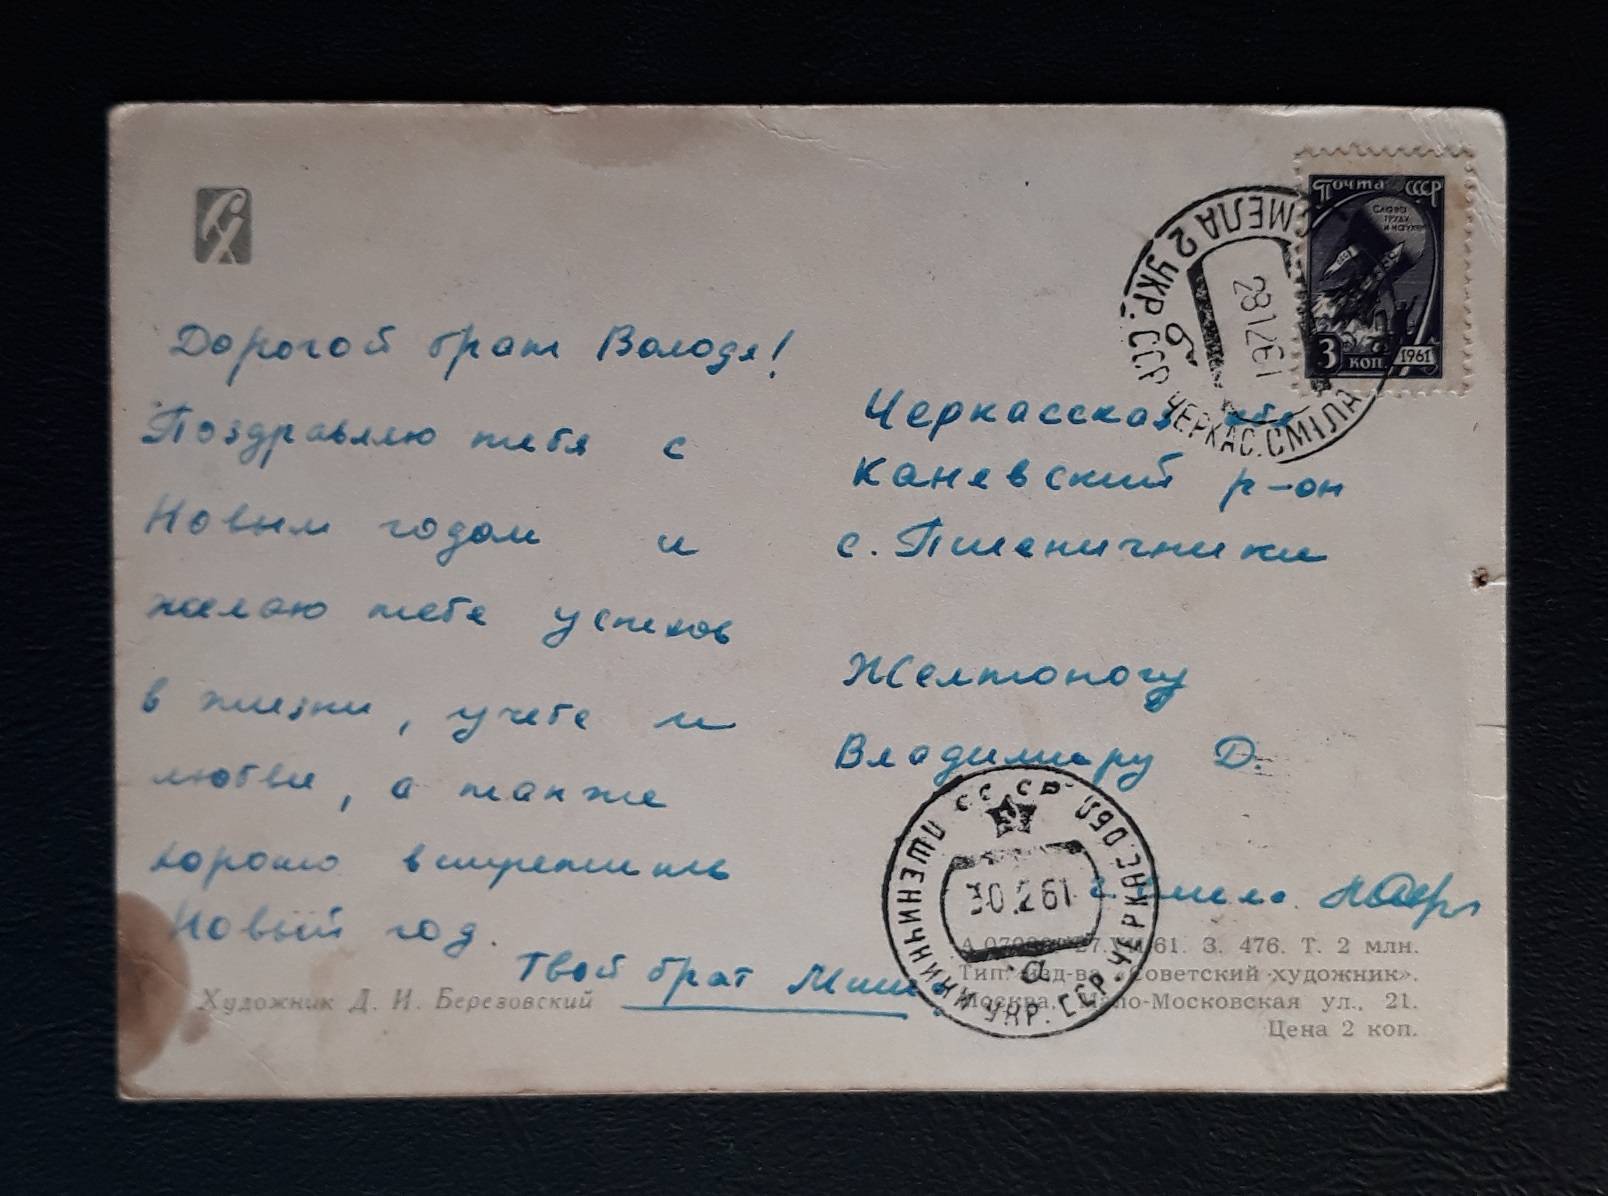 Дорогой брат Володя!
Поздравляю тебя с
Новым годом и
желаю тебе успехов
в жизни, учебе и
любви, а также
хорошо встретить
Новый год.
Твой брат Миша
Художник Д. И. Березовский
Почта СССР
Слава
труду
и науке
3 коп. 1961
СМЕЛА 2 УКР. ССР ЧЕРКАС. СМІЛА
281261
б
Черкасская обл
Каневский р-он
с. Пшеничники
Желтоногу
Владимиру Д.
СССР
ПШЕНИЧНИКИ УКР. ССР. ЧЕРКАС. ОБЛ
30.2 61
а
г. Смела.
61. З. 476. Т. 2 млн.
Тип. изд-ва «Советский художник».
Москва, Мало-Московская ул., 21.
Цена 2 коп.